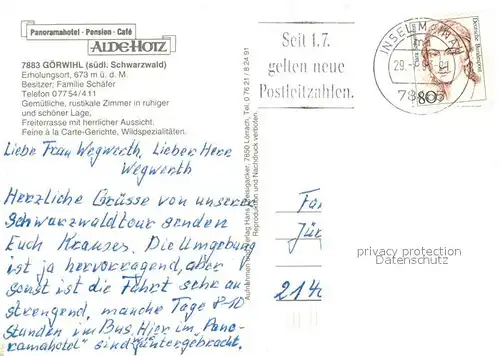 Panoramahotel · Pension · Café
ALDE-HOTZ
7883 GÖRWIHL (südl. Schwarzwald)
Erholungsort, 673 m ü. d. M.
Besitzer: Familie Schäfer
Telefon 07754/411
Gemütliche, rustikale Zimmer in ruhiger
und schöner Lage,
Freiterrasse mit herrlicher Aussicht.
Feine à la Carte-Gerichte, Wildspezialitäten.
Liebe Frau Wegwerth, Lieber Herr
Wegwerth
Herzliche Grüsse von unserer
Schwarzwaldtour senden
Euch Krauses. Die Umgebung
ist ja hervorragend, aber
sonst ist die Fahrt sehr an
strengend, manche Tage 8-10
Stunden im Bus. Hier im "Pano-
ramahotel" sind wir untergebracht.
Aufnahmen und Verlag Hans 7850 Lörrach, Tel. 0 76 21 / 8 24 91
Reproduktion und Nachdruck verboten.
Seit 1.7.
gelten neue
Postleitzahlen.
INSEL MAINAU
29.
Deutsche Bundespost
80
Jür
214
privacy protection
Datenschutz